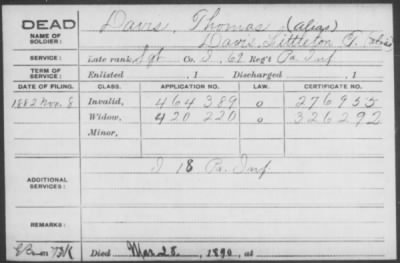 DEAD
NAME OF SOLDIER:
Davis, Thomas (alias)
Davis, Littleton T.
SERVICE:
Late rank Sgt Co. I, 69 Reg't Pa Inf
TERM OF SERVICE:
Enlisted , 1 Discharged , 1
DATE OF FILING. CLASS. APPLICATION NO. LAW. CERTIFICATE NO.
1882 Nov. 8 Invalid, 464 389 o 276 955
Widow, 420 220 o 326 292
Minor,
ADDITIONAL SERVICES:
I 18 Pa. Inf
REMARKS:
Died Mar 28, 1890, at